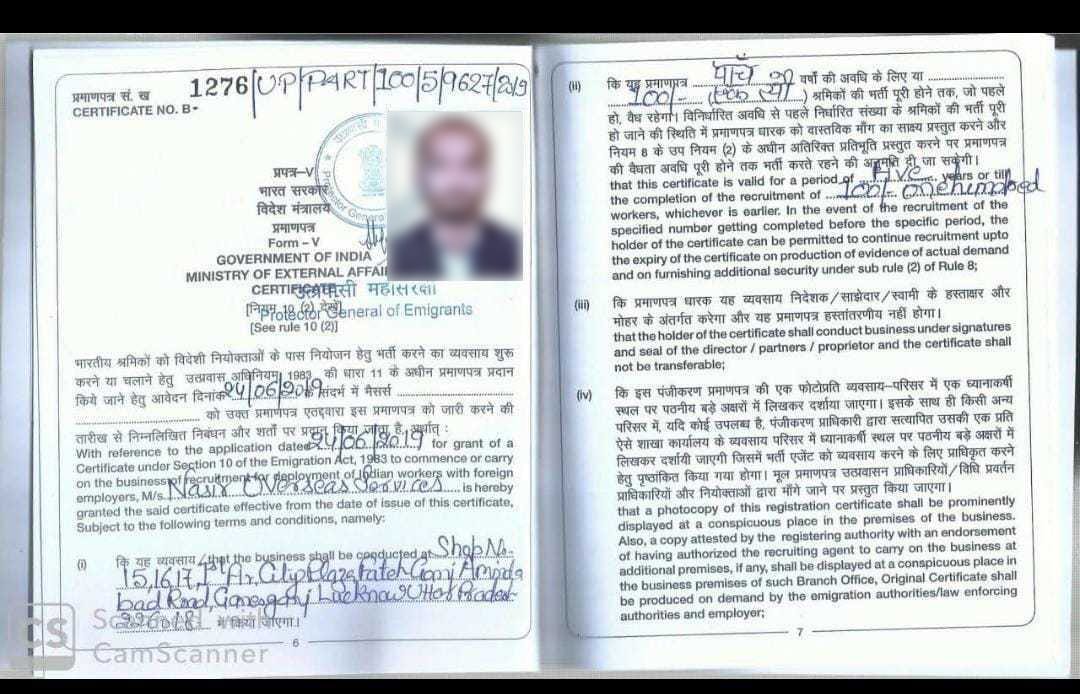 प्रमाणपत्र सं. ख
CERTIFICATE NO. B-
1276/UP/PART/100/5/9627/2019
प्रपत्र–V
भारत सरकार
विदेश मंत्रालय
प्रमाणपत्र
Form – V
GOVERNMENT OF INDIA
MINISTRY OF EXTERNAL AFFAI
CERTIFICATE
उत्प्रवासी महासंरक्षी
[नियम 10 (2) देखें]
Protector General of Emigrants
[See rule 10 (2)]
भारतीय श्रमिकों को विदेशी नियोक्ताओं के पास नियोजन हेतु भर्ती करने का व्यवसाय शुरू
करने या चलाने हेतु उत्प्रवास अधिनियम 1983 की धारा 11 के अधीन प्रमाणपत्र प्रदान
किये जाने हेतु आवेदन दिनांक 24/06/2019 के संदर्भ में मैसर्स
को उक्त प्रमाणपत्र एतद्द्वारा इस प्रमाणपत्र को जारी करने की
तारीख से निम्नलिखित निबंधन और शर्तों पर प्रदान किया जाता है, अर्थात् :
With reference to the application dated 24/06/2019 for grant of a
Certificate under Section 10 of the Emigration Act, 1983 to commence or carry
on the business of recruitment for deployment of Indian workers with foreign
employers, M/s. Nasir Overseas Services is hereby
granted the said certificate effective from the date of issue of this certificate,
Subject to the following terms and conditions, namely:
(i) कि यह व्यवसाय/that the business shall be conducted at Shop No.
15,16,17, City Plaza Fateh Ganj Amina
bad Road, Ganeshganj Lucknow Uttar Pradesh-
226018 में किया जाएगा।
6
(ii) कि यह प्रमाणपत्र पाँच वर्षों की अवधि के लिए या
100/- (एक सौ) श्रमिकों की भर्ती पूरी होने तक, जो पहले
हो, वैध रहेगा। विनिर्धारित अवधि से पहले निर्धारित संख्या के श्रमिकों की भर्ती पूरी
हो जाने की स्थिति में प्रमाणपत्र धारक को वास्तविक माँग का साक्ष्य प्रस्तुत करने और
नियम 8 के उप नियम (2) के अधीन अतिरिक्त प्रतिभूति प्रस्तुत करने पर प्रमाणपत्र
की वैधता अवधि पूरी होने तक भर्ती करते रहने की अनुमति दी जा सकेगी।
that this certificate is valid for a period of Five years or till
the completion of the recruitment of 100/- one hundred
workers, whichever is earlier. In the event of the recruitment of the
specified number getting completed before the specific period, the
holder of the certificate can be permitted to continue recruitment upto
the expiry of the certificate on production of evidence of actual demand
and on furnishing additional security under sub rule (2) of Rule 8;
(iii) कि प्रमाणपत्र धारक यह व्यवसाय निदेशक/साझेदार/स्वामी के हस्ताक्षर और
मोहर के अंतर्गत करेगा और यह प्रमाणपत्र हस्तांतरणीय नहीं होगा।
that the holder of the certificate shall conduct business under signatures
and seal of the director / partners / proprietor and the certificate shall
not be transferable;
(iv) कि इस पंजीकरण प्रमाणपत्र की एक फोटोप्रति व्यवसाय–परिसर में एक ध्यानाकर्षी
स्थल पर पठनीय बड़े अक्षरों में लिखकर दर्शाया जाएगा। इसके साथ ही किसी अन्य
परिसर में, यदि कोई उपलब्ध है, पंजीकरण प्राधिकारी द्वारा सत्यापित उसकी एक प्रति
ऐसे शाखा कार्यालय के व्यवसाय परिसर में ध्यानाकर्षी स्थल पर पठनीय बड़े अक्षरों में
लिखकर दर्शायी जाएगी जिसमें भर्ती एजेंट को व्यवसाय करने के लिए प्राधिकृत करने
हेतु पृष्ठांकित किया गया होगा। मूल प्रमाणपत्र उत्प्रवासन प्राधिकारियों/विधि प्रवर्तन
प्राधिकारियों और नियोक्ताओं द्वारा माँगे जाने पर प्रस्तुत किया जाएगा।
that a photocopy of this registration certificate shall be prominently
displayed at a conspicuous place in the premises of the business.
Also, a copy attested by the registering authority with an endorsement
of having authorized the recruiting agent to carry on the business at
additional premises, if any, shall be displayed at a conspicuous place in
the business premises of such Branch Office, Original Certificate shall
be produced on demand by the emigration authorities/law enforcing
authorities and employer;
7
CS
Scanned with
CamScanner